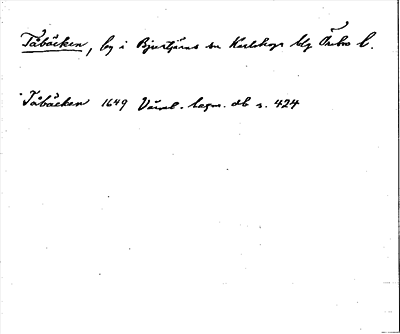 Tåbäcken, log i Bjurtjärns sn Karlskoga blg Örebro l.
Tåbäcken 1649 Värml. lagm. db s. 424